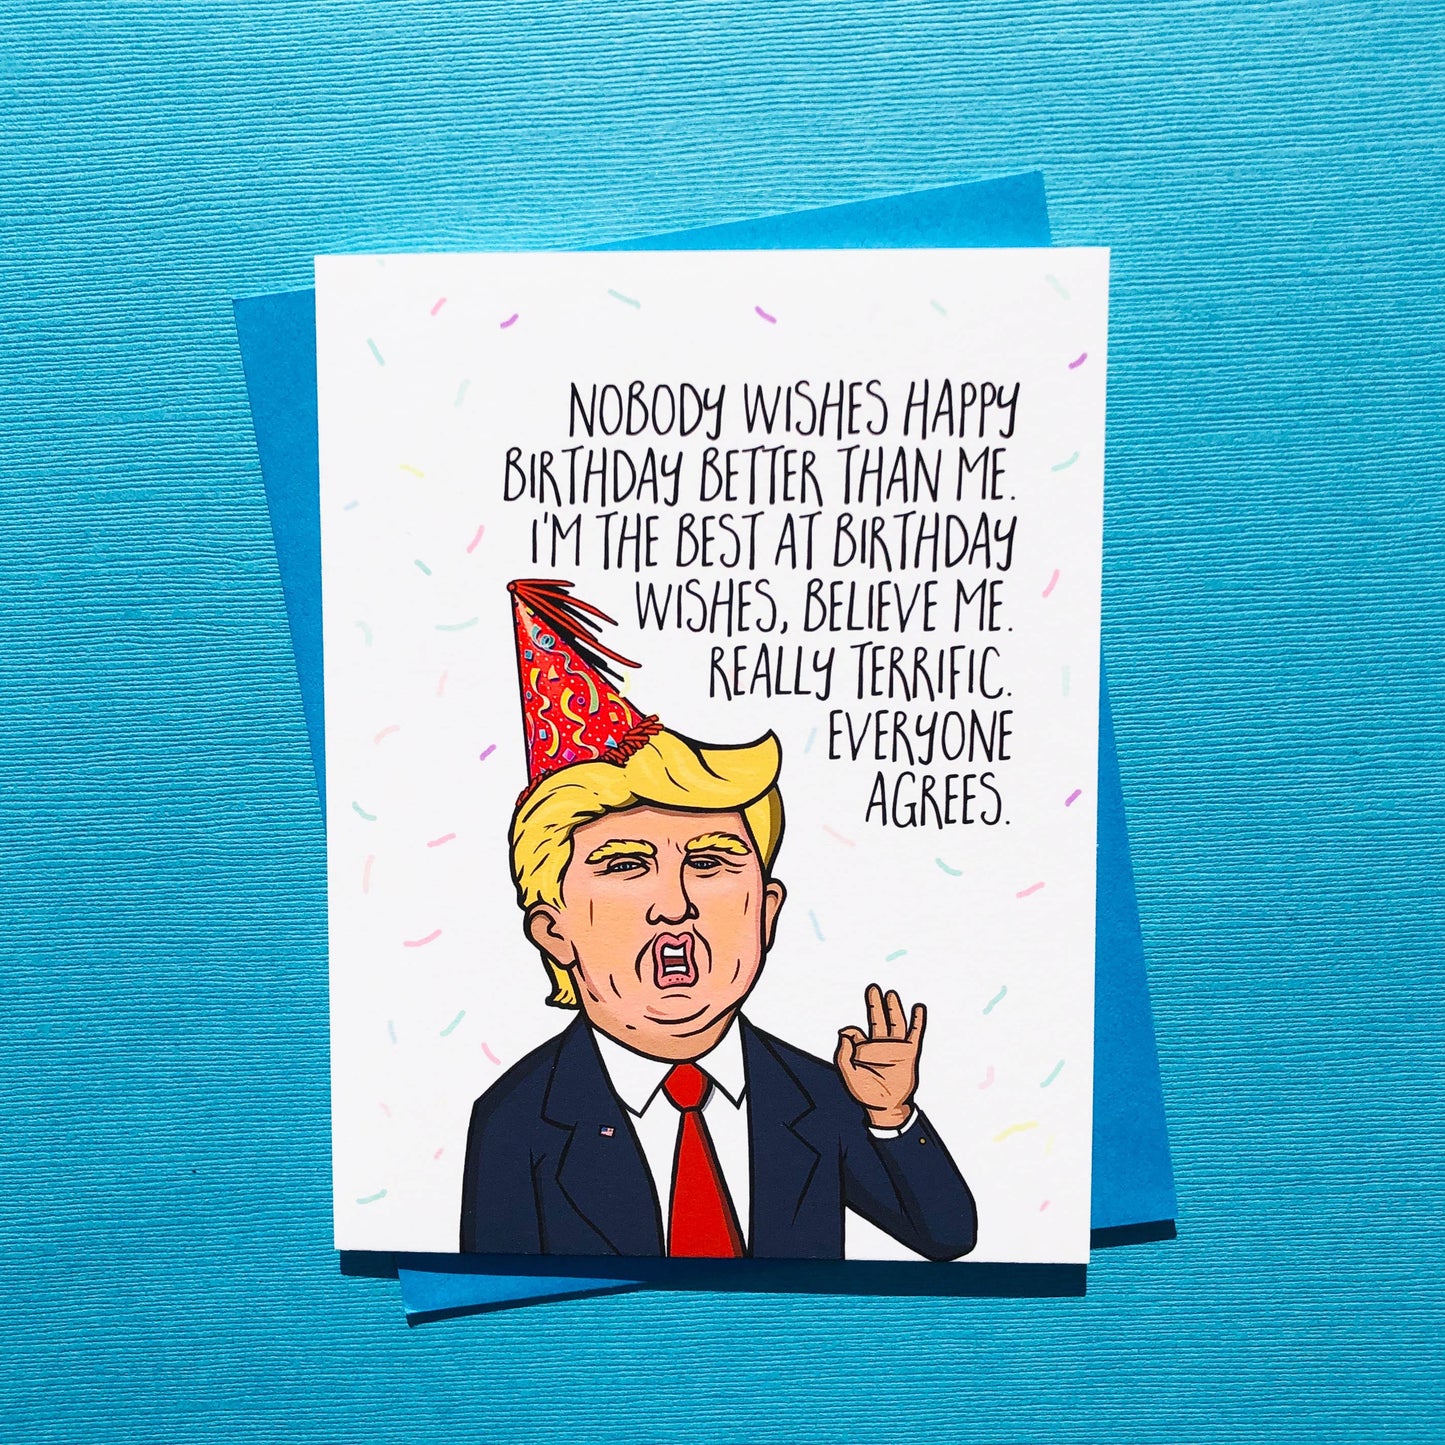 NOBODY WISHES HAPPY
BIRTHDAY BETTER THAN ME.
I'M THE BEST AT BIRTHDAY
WISHES, BELIEVE ME.
REALLY TERRIFIC.
EVERYONE
AGREES.